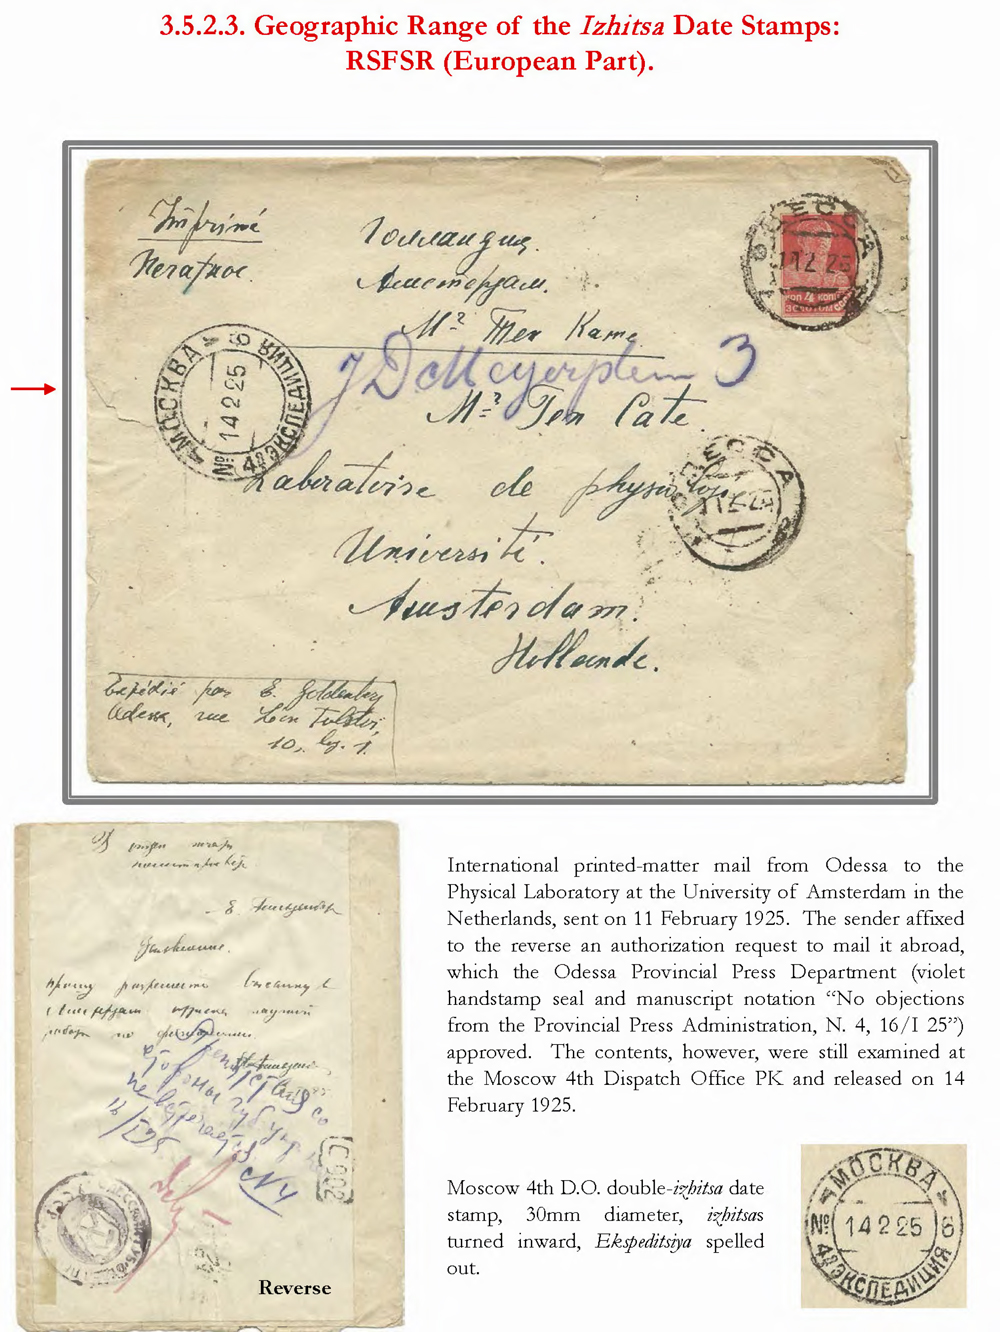 3.5.2.3. Geographic Range of the Izhitsa Date Stamps:
RSFSR (European Part).
Imprimé
Печатное
Голландия.
Амстердам.
Mr Тен Кате
J D Meyerplein 3
Mr Ten Cate.
Laboratoire de physiolog.
Université.
Amsterdam.
Hollande.
Expédié par E. Goldenberg
Odessa, rue Léon Tolstoi,
10, 1.
ОДЕССА
11 2 25
КОП 4 КОП
ЗОЛОТОМ
МОСКВА
14 2 25
№ 6
4ª ЭКСПЕДИЦИЯ
ОДЕССА
11 2 25
Заявление.
прошу разрешить
со
стороны
не встречается
16/I 25
N 4
С 902
Reverse
International printed-matter mail from Odessa to the
Physical Laboratory at the University of Amsterdam in the
Netherlands, sent on 11 February 1925. The sender affixed
to the reverse an authorization request to mail it abroad,
which the Odessa Provincial Press Department (violet
handstamp seal and manuscript notation “No objections
from the Provincial Press Administration, N. 4, 16/I 25”)
approved. The contents, however, were still examined at
the Moscow 4th Dispatch Office PK and released on 14
February 1925.
Moscow 4th D.O. double-izhitsa date
stamp, 30mm diameter, izhitsas
turned inward, Ekspeditsiya spelled
out.
МОСКВА
№ 14 2 25 6
4ª ЭКСПЕДИЦИЯ